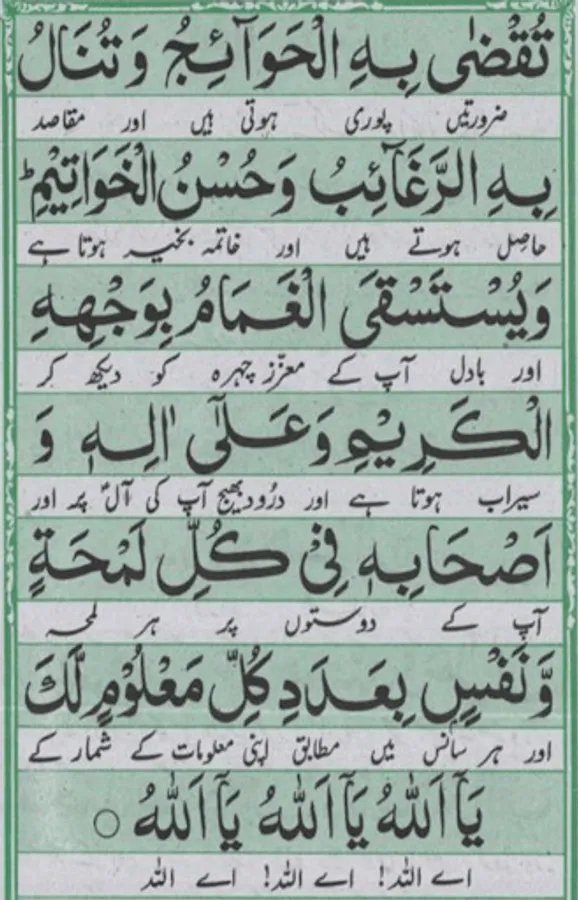 تُقْضٰى بِهِ الْحَوَآئِجُ وَتُنَالُ
ضرورتیں پوری ہوتی ہیں اور مقاصد
بِهِ الرَّغَآئِبُ وَحُسْنُ الْخَوَاتِيْمِ ؕ
حاصل ہوتے ہیں اور خاتمہ بخیر ہوتا ہے
وَيُسْتَسْقَى الْغَمَامُ بِوَجْهِهِ
اور بادل آپ کے معزّز چہرہ کو دیکھ کر
الْكَرِيْمِ وَعَلٰٓى اٰلِهٖ وَ
سیراب ہوتا ہے اور درُود بھیج آپ کی آلؑ پر اور
اَصْحَابِهٖ فِيْ كُلِّ لَمْحَةٍ
آپ کے دوستوں پر ہر لمحہ
وَّنَفْسٍ بِعَدَدِ كُلِّ مَعْلُوْمٍ لَّكَ
اور ہر سانس میں مطابق اپنی معلومات کے شمار کے
يَآ اَللّٰهُ يَآ اَللّٰهُ يَآ اَللّٰهُ ○
اے اللہ! اے اللہ! اے اللہ